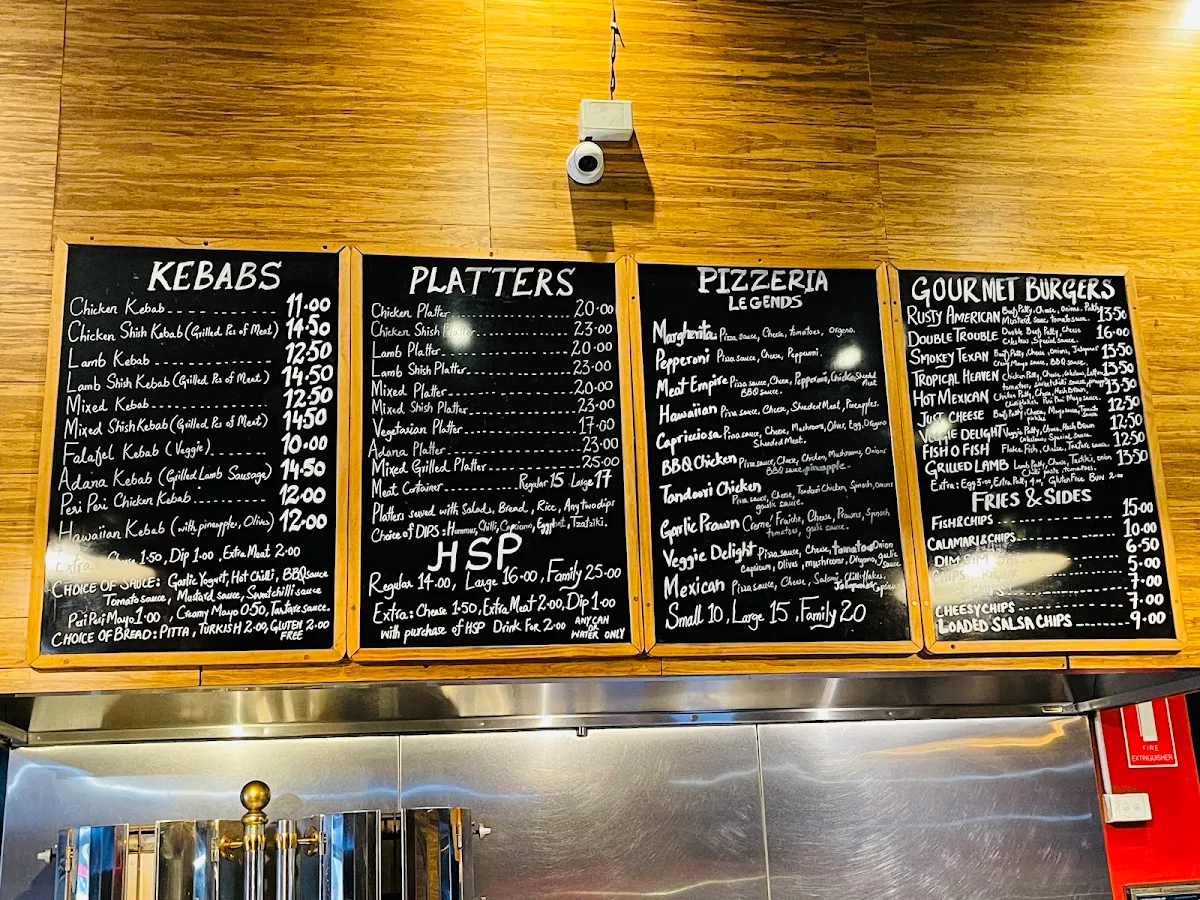 KEBABS
Chicken Kebab 11.00
Chicken Shish Kebab (Grilled Pcs of Meat) 14.50
Lamb Kebab 12.50
Lamb Shish Kebab (Grilled Pcs of Meat) 14.50
Mixed Kebab 12.50
Mixed Shish Kebab (Grilled Pcs of Meat) 14.50
Falafel Kebab (Veggie) 10.00
Adana Kebab (Grilled Lamb Sausage) 14.50
Peri Peri Chicken Kebab 12.00
Hawaiian Kebab (with pineapple, Olives) 12.00
Extra : Cheese 1.50, Dip 1.00, Extra Meat 2.00
CHOICE OF SAUCE: Garlic Yogurt, Hot Chilli, BBQ sauce
Tomato sauce, Mustard sauce, Sweet chilli sauce
Peri Peri Mayo 1.00, Creamy Mayo 0.50, Tartare sauce.
CHOICE OF BREAD: PITTA, TURKISH 2.00, GLUTEN FREE 2.00
PLATTERS
Chicken Platter 20.00
Chicken Shish Platter 23.00
Lamb Platter 20.00
Lamb Shish Platter 23.00
Mixed Platter 20.00
Mixed Shish Platter 23.00
Vegetarian Platter 17.00
Adana Platter 23.00
Mixed Grilled Platter 25.00
Meat Container Regular 15 Large 17
Platters served with Salads, Bread, Rice, Any two dips
Choice of DIPS: Hummus, Chilli, Capsicum, Eggplant, Tzatziki.
HSP
Regular 14.00, Large 16.00, Family 25.00
Extra: Cheese 1.50, Extra Meat 2.00, Dip 1.00
with purchase of HSP Drink For 2.00 ANY CAN OR WATER ONLY
PIZZERIA
LEGENDS
Margherita Pizza sauce, Cheese, tomatoes, Oregano.
Pepperoni Pizza sauce, Cheese, Pepperoni.
Meat Empire Pizza sauce, Cheese, Pepperoni, Chicken, Shaded Meat
BBQ sauce.
Hawaiian Pizza sauce, Cheese, Shreded Meat, Pineapples.
Capricciosa Pizza sauce, Cheese, Mushrooms, Olives, Egg, Oregano
Shreded Meat.
BBQ Chicken Pizza sauce, Cheese, Chicken, Mushrooms, Onions
BBQ sauce, pineapple.
Tandoori Chicken Pizza sauce, Cheese, Tandoori Chicken, Spinach, onions
garlic sauce.
Garlic Prawn Creme Fraiche, Cheese, Prawns, Spinach
tomatoes, garlic sauce.
Veggie Delight Pizza sauce, Cheese, tomato, Onion
Capsicum, Olives, mushrooms, Oregano, garlic sauce
Mexican Pizza sauce, Cheese, Salami, Chilli flakes,
Jalapenos, Capsicum
Small 10, Large 15, Family 20
GOURMET BURGERS
RUSTY AMERICAN Beef Patty, Cheese, Onions, Pickles 13.50
Mustard sauce, tomato sauce.
DOUBLE TROUBLE Double Beef Patty, Cheese 16.00
Coleslaw, Special sauce.
SMOKEY TEXAN Beef Patty, Cheese, Onions, Jalapenos 13.50
Creamy Mayo sauce, BBQ sauce.
TROPICAL HEAVEN Chicken Patty, Cheese, Coleslaw, 13.50
tomatoes, sweetchilli sauce, pineapple
HOT MEXICAN Chicken Patty, Cheese, Hash Brown, 13.50
Chilli flakes, Peri Peri Mayo sauce.
JUST CHEESE Beef Patty, Cheese, Mayo sauce, Tomato 12.50
VEGGIE DELIGHT Veggie Patty, Cheese, Hash Brown 12.50
Coleslaw, Special sauce.
FISH O FISH Flake Fish, Cheese, Tartare sauce. 12.50
GRILLED LAMB Lamb Patty, Cheese, Tzatziki, onion 13.50
tomatoes.
Extra: Egg 3.00, Extra Patty 4.00, Gluten Free BUN 2.00
FRIES & SIDES
FISH & CHIPS 15.00
CALAMARI & CHIPS 10.00
DIM SIM 6.50
CHIPS 5.00
7.00
CHEESY CHIPS 7.00
LOADED SALSA CHIPS 9.00
FIRE
EXTINGUISHER